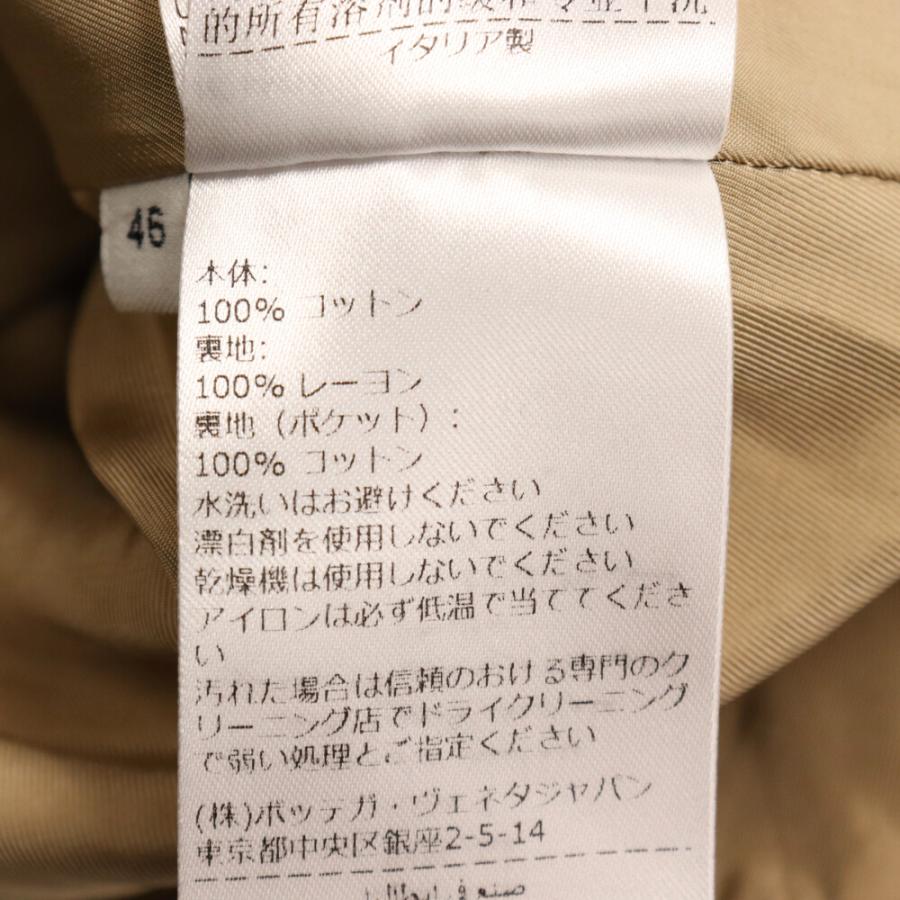 的所有溶剂的缓和专业干洗
イタリア製
46
本体:
100% コットン
裏地:
100% レーヨン
裏地 (ポケット) :
100% コットン
水洗いはお避けください
漂白剤を使用しないでください
乾燥機は使用しないでください
アイロンは必ず低温で当ててくださ
い
汚れた場合は信頼のおける専門のク
リーニング店でドライクリーニング
で弱い処理とご指定ください
(株)ボッテガ・ヴェネタジャパン
東京都中央区銀座2-5-14
صنع في إيطاليا